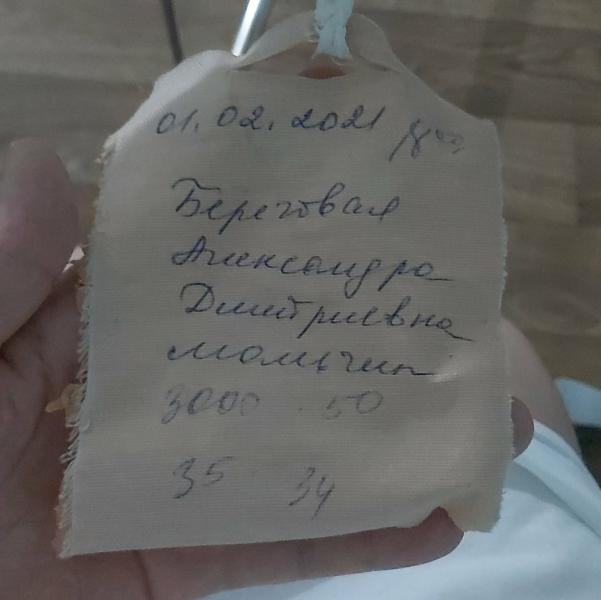 01.02.2021 18⁰⁰
Береговая
Александра
Дмитриевна
мальчик
3000 50
35 34